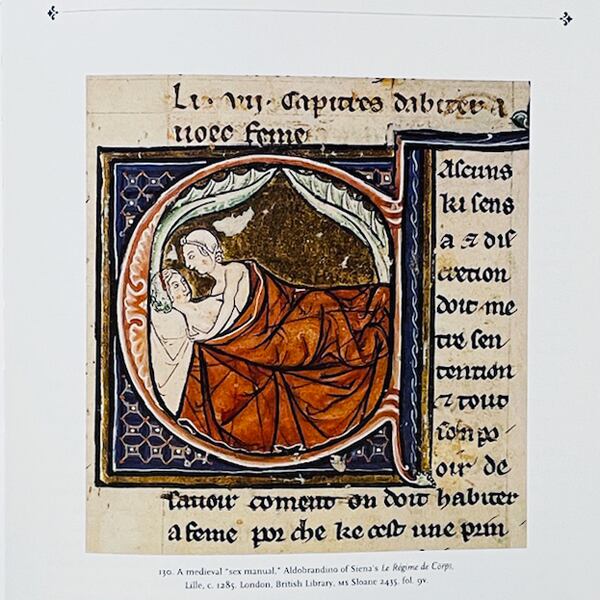 Li .vii. Capitres dabiter a
uoec feme
Ascuns
ki sens
a & dis
cretion
doit me
tre sen
tention
& tout
oir de
sauoir coment on doit habiter
a feme por che ke cest une prin
130. A medieval "sex manual," Aldobrandino of Siena's Le Régime de Corps,
Lille, c. 1285. London, British Library, MS Sloane 2435, fol. 9v.